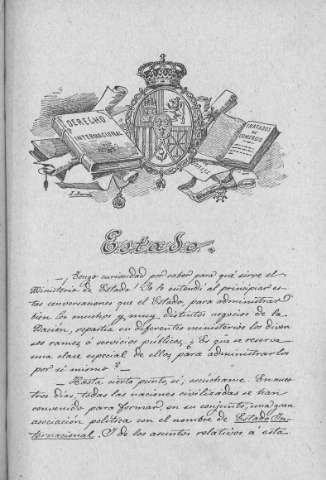 DERECHO
INTERNACIONAL
TRATADOS
DE
COMERCIO
Estado.
— ¡Tengo curiosidad por saber para qué sirve el
Ministerio de Estado! Yo lo entendí al principiar es-
tas conversaciones que el Estado, para administrar
bien los muchos y muy distintos negocios de la
Nación, repartía en diferentes ministerios los diver-
sos ramos ó servicios públicos, ¿Es que se reserva
una clase especial de ellos para administrarlos
por si mismo?
— Hasta cierto punto, si; escúchame. En nues-
tros días, todas las naciones civilizadas se han
convenido para formar, en su conjunto, una gran
asociación política con el nombre de Estado In-
ternacional. Y de los asuntos relativos á esta